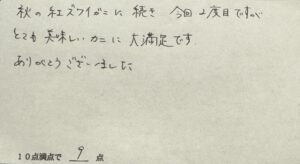 秋の紅ズワイガニに続き 今回2度目ですが
とても美味しいカニに大満足です
ありがとうございました
10点満点で 9 点